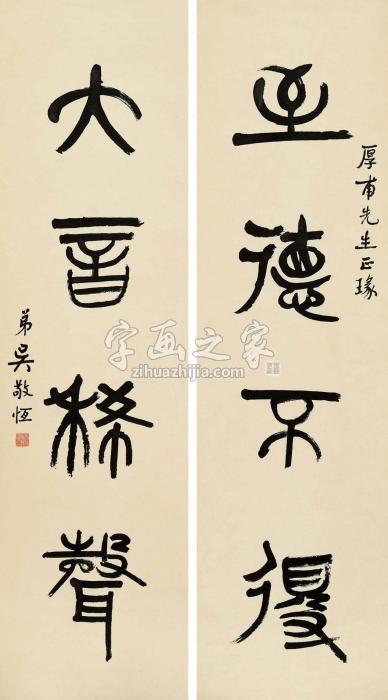 厚甫先生正瑑
至德不得
大音稀聲
弟吳敬恆
字画之家
zihuazhijia.com